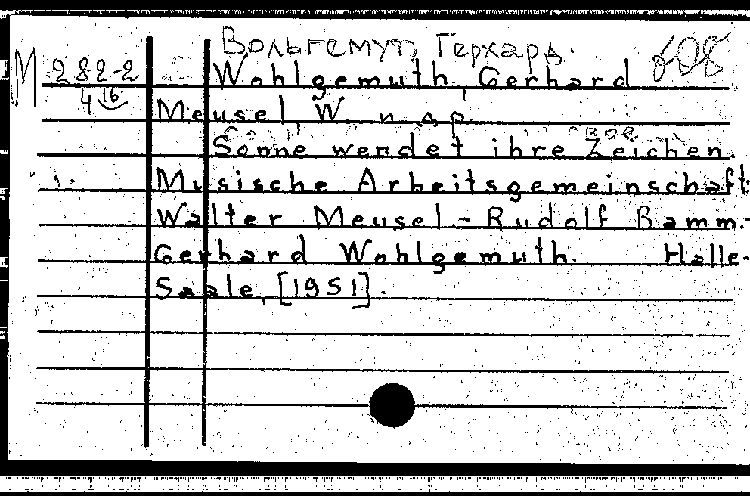 Вольгемут, Герхард.
М 282-2 Wohlgemuth, Gerhard
4 16 Meusel, W. и др.
Sonne wendet ihre Zeichen.
Musische Arbeitsgemeinschaft
Walter Meusel - Rudolf Bamm.-
Gerhard Wohlgemuth. Halle-
Saale, [1951].